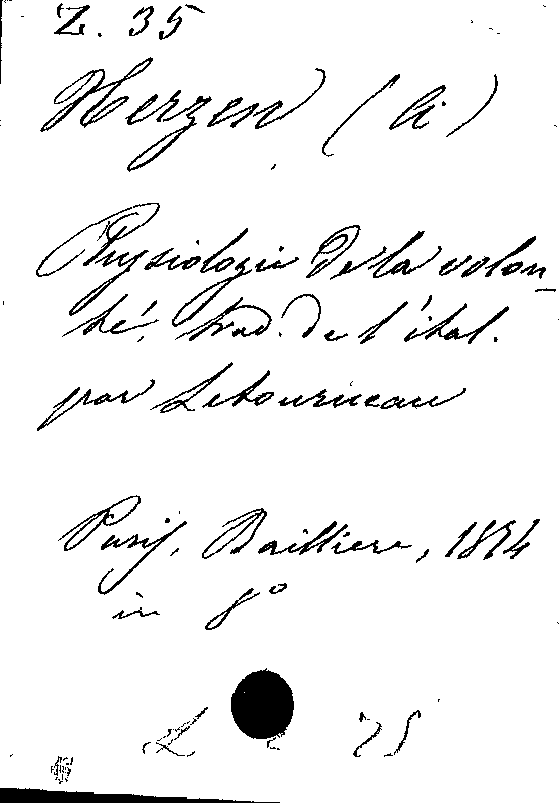 Z. 35
Herzen (A.)
Physiologie de la volon_
té, trad. de l'ital.
par Letourneau
Paris, Baillière, 1874
in 8°
L 75